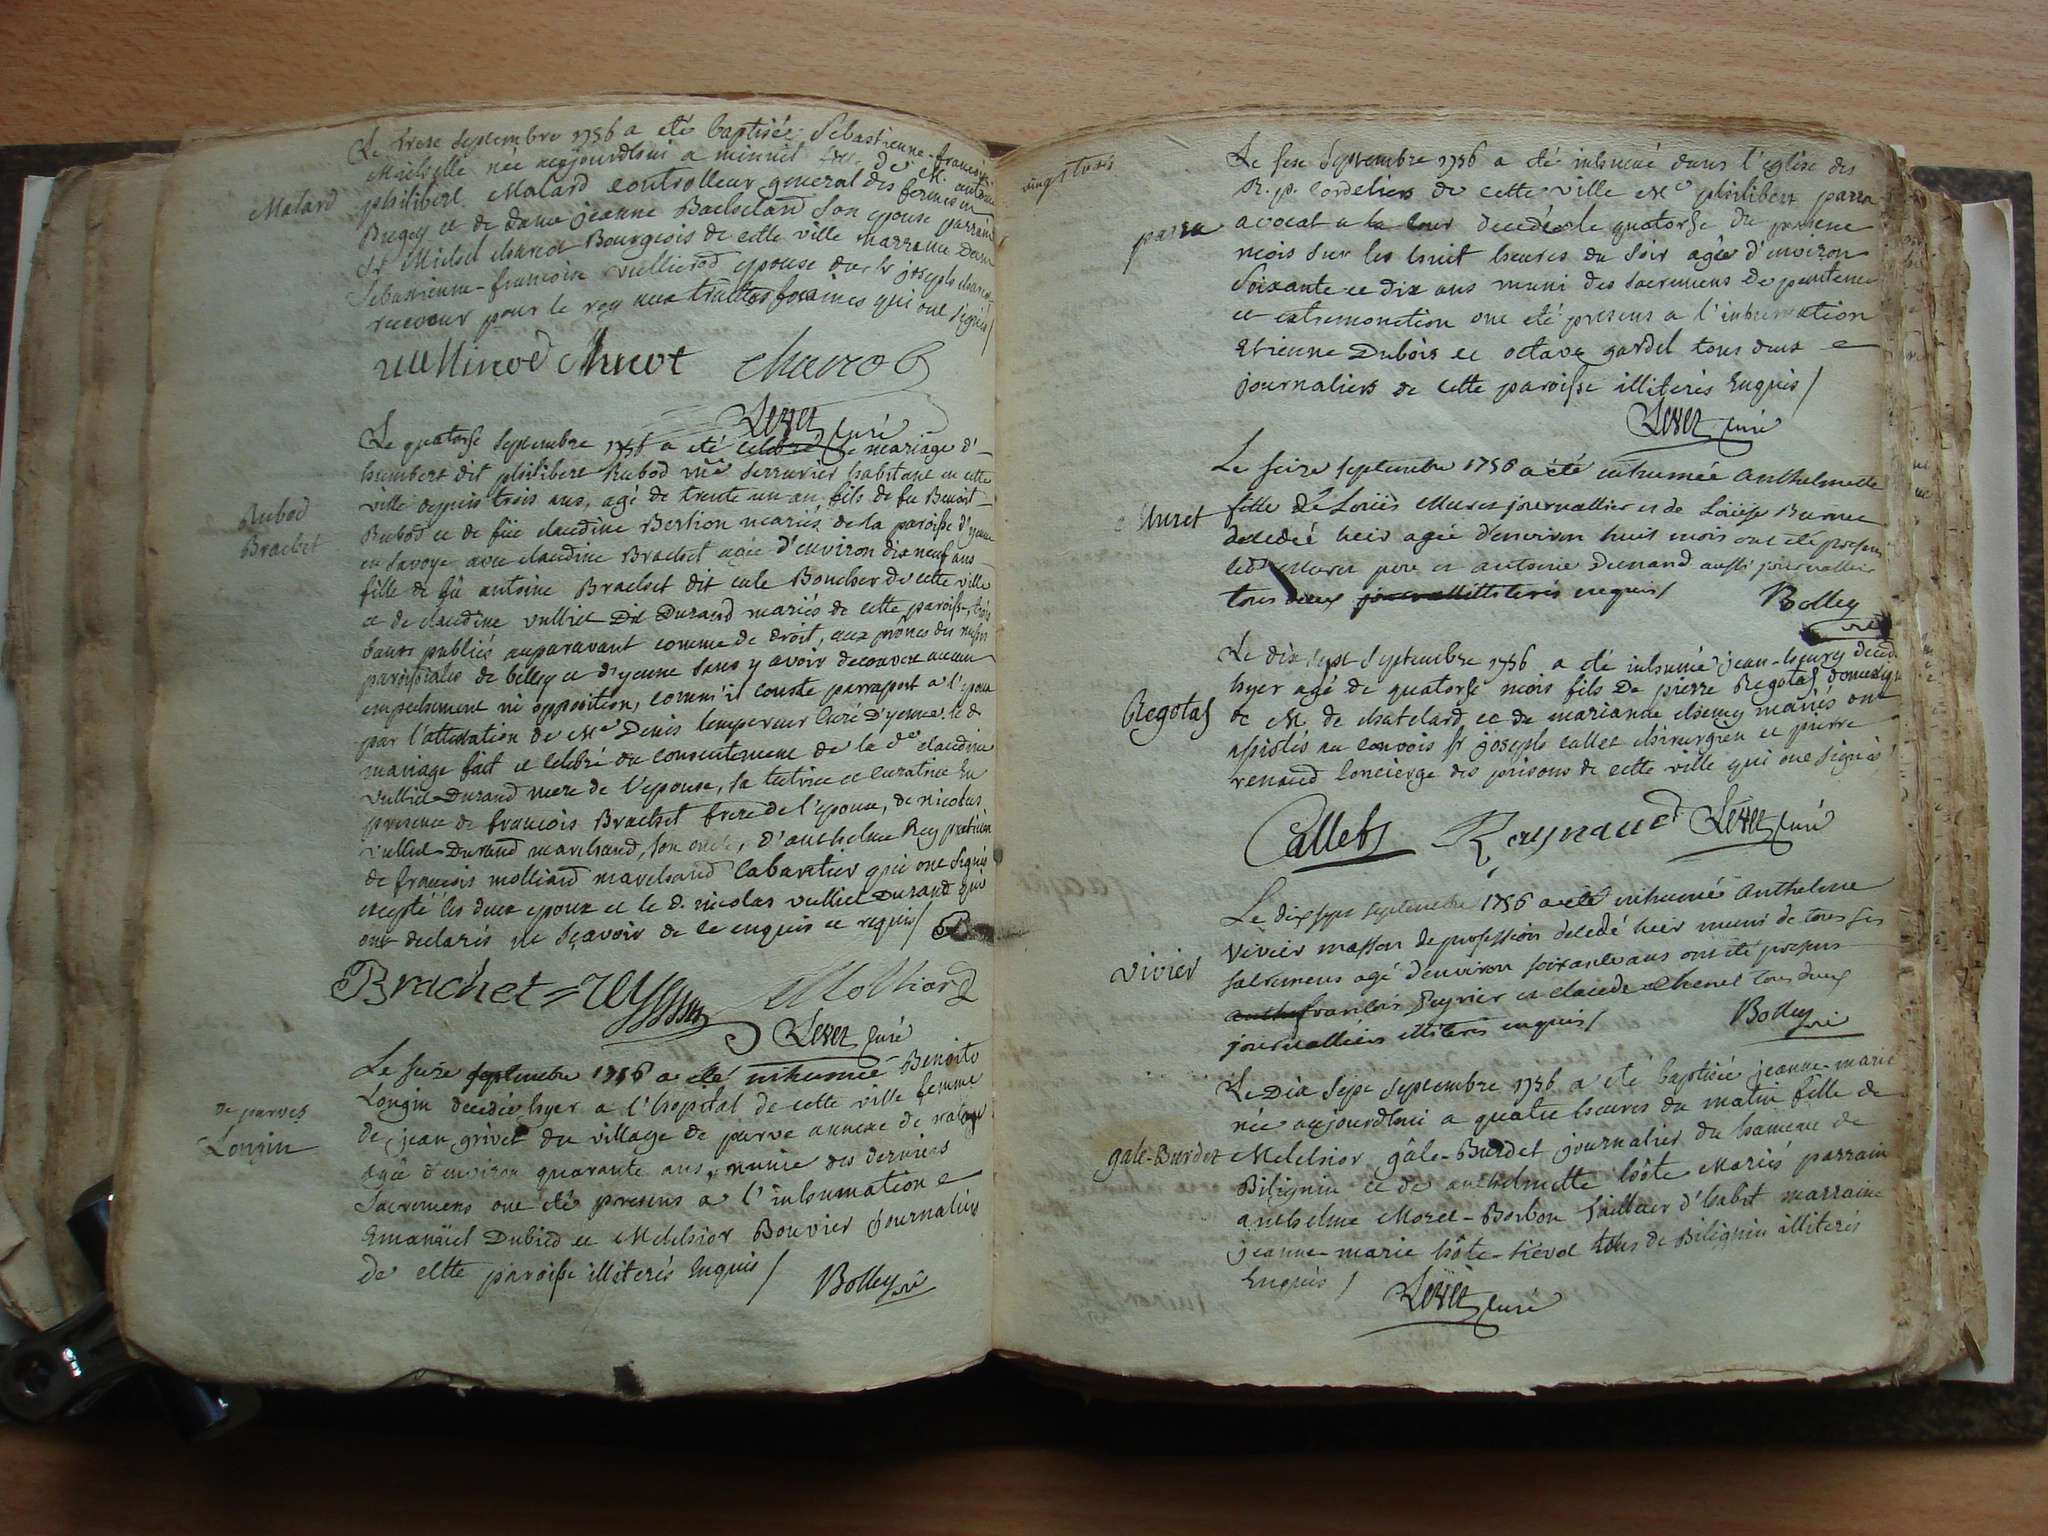 Le treze septembre 1756 a été baptisée Sebastienne-françoise
Michelle née aujourdhui a minuit fille de M. antoine
Malard philibert Malard controlleur general des fermes en
Bugey et de dame jeanne Bachelard son epouse parrain
Sr Michel Bourgeois de cette ville marraine dame
Sebastienne-francoise vullierod epouse du Sr joseph
receveur pour le roy aux traittes foraines qui ont signés /
vullierod Chucot
Levet Curé
Le quatorse septembre 1756 a été celebré le mariage d'
humbert dit philibert Rubod me serrurier habitant en cette
ville depuis trois ans, agé de trente un an fils de fu Benoit
Rubod
Brachet
Rubod et de füe claudine Berlion mariés de la paroisse d'yenne
en Savoye avec claudine Brachet agée d'environ dix neuf ans
fille de fû antoine Brachet dit cule Boucher de cette ville
et de claudine vulliet dit Durand mariés de cette paroisse, trois
bans publiés auparavant comme de droit, aux prônes des messes
paroissiales de belley et d'yenne sans y avoir decouvert aucun
empechement ni opposition, comm'il conste par rapport a l'epoux
par l'attestation de Me Denis lempereur Curé d'yenne, le d.
mariage fait et celebré du consentement de la de claudine
vulliet-Durand mere de l'epouse, sa tutrice et curatrice En
presence de francois Brachet frere de l'epouse, de nicolas
vulliet-Durand marchand, son oncle, d'anthelme Rey praticien
de françois molliard marchand Cabaretier qui ont signés
excepté les deux epoux et le d. nicolas vulliet Durand qui
ont declarés ne sçavoir de ce enquis et requis /
Brachet = Rey Molliard
Levet Curé
Le seize septembre 1756 a été inhumée Benoite
de parves
Longin
Longin decedée hyer a l'hopital de cette ville femme
de jean grivet du village de parve annexe de
agée d'environ quarante ans, munie des derniers
Sacremens ont été presens a l'inhumation
Emanüel Dubied et Melchior Bouvier journaliers
de cette paroisse illiterés Enquis /
Bolley vic
vingt trois
Le seze Septembre 1756 a été inhumé dans l'eglise des
R. p. Cordeliers de cette ville Me philibert parra
parra avocat a la cour decedé le quatorse du present
mois sur les huit heures du soir agée d'environ
soixante et dix ans muni des sacremens de penitence
et extremonction ont été presens a l'inhumation
Etienne Dubois et octave gardel tous deux
journaliers de cette paroisse illiterés Enquis /
Levet Curé
Le seize septembre 1756 a été inhumée Anthelmette
Muret fille de Loüis Muret journallier et de Loüise Burnet
decedée hier agée d'environ huit mois ont été presens
led. Muret pere et antoine Dunand aussi journallier
tous deux illiterés enquis /
Bolley
vic
Le dix sept Septembre 1756 a été inhumé jean-heury decedé
hyer agé de quatorse mois fils de pierre Regotas domestique
Regotas de M. de chatelard et de marianne mariés ont
assistés au convois Sr joseph Callet chirurgien et pierre
renaud Concierge des prisons de cette ville qui ont signés
Callet Raynaud Levet Curé
Le dix sept septembre 1756 a été inhumé Anthelme
Vivier masson de profession decedé hier muni de tous ses
vivier sacremens agé d'environ soixante ans ont été presens
francois Peynier et claude chenel tous deux
journalliers illiterés enquis /
Bolley vic
Le Dix Sept Septembre 1756 a été baptisée jeanne-marie
née aujourdhui a quatre heures du matin fille de
gale-Burdet Melchior gâle-Burdet journalier du hameau de
Bilignin et de anthelmette hôte Mariés parrain
anthelme Morel-Bonbon tailleur d'habit marraine
jeanne-marie hôte- tous de Bilignin illiterés
Enquis /
Levet Curé